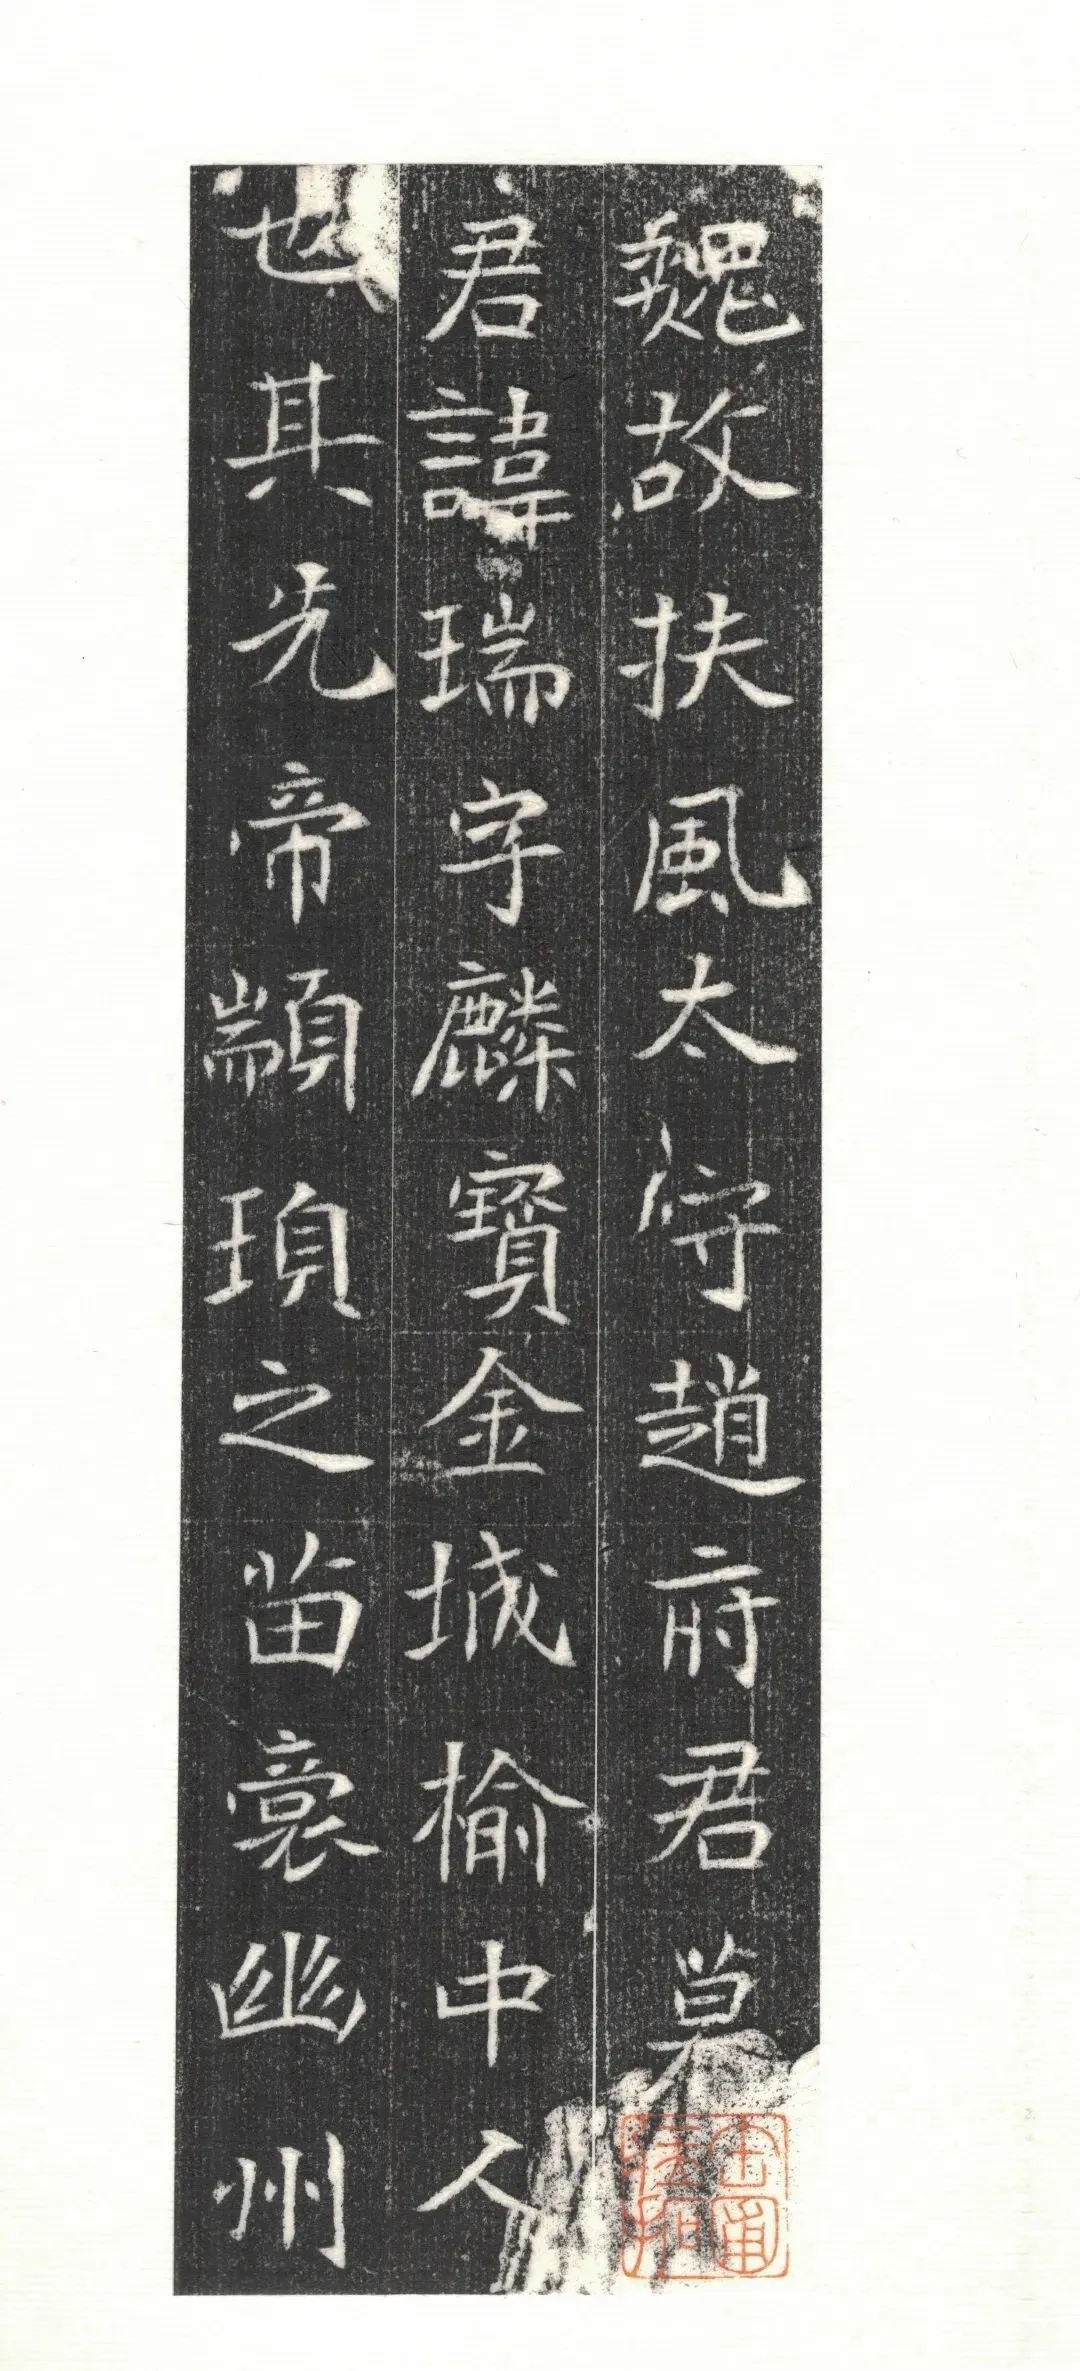 魏故扶風太守趙府君墓
君諱瑞字麟寳金城榆中人
也其先帝顓頊之苗裔幽州